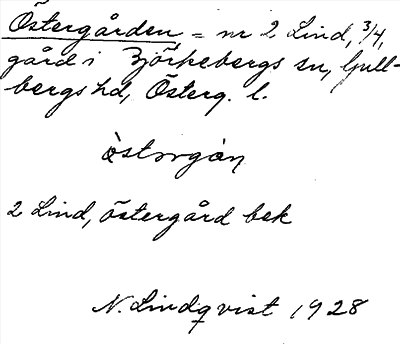 Östergården = nr 2 Lind, 3/4,
gård i Björkebergs sn, Gull-
bergs hd, Österg. l.
òstərgán
2 Lind, östergård bek
N. Lindqvist 1928